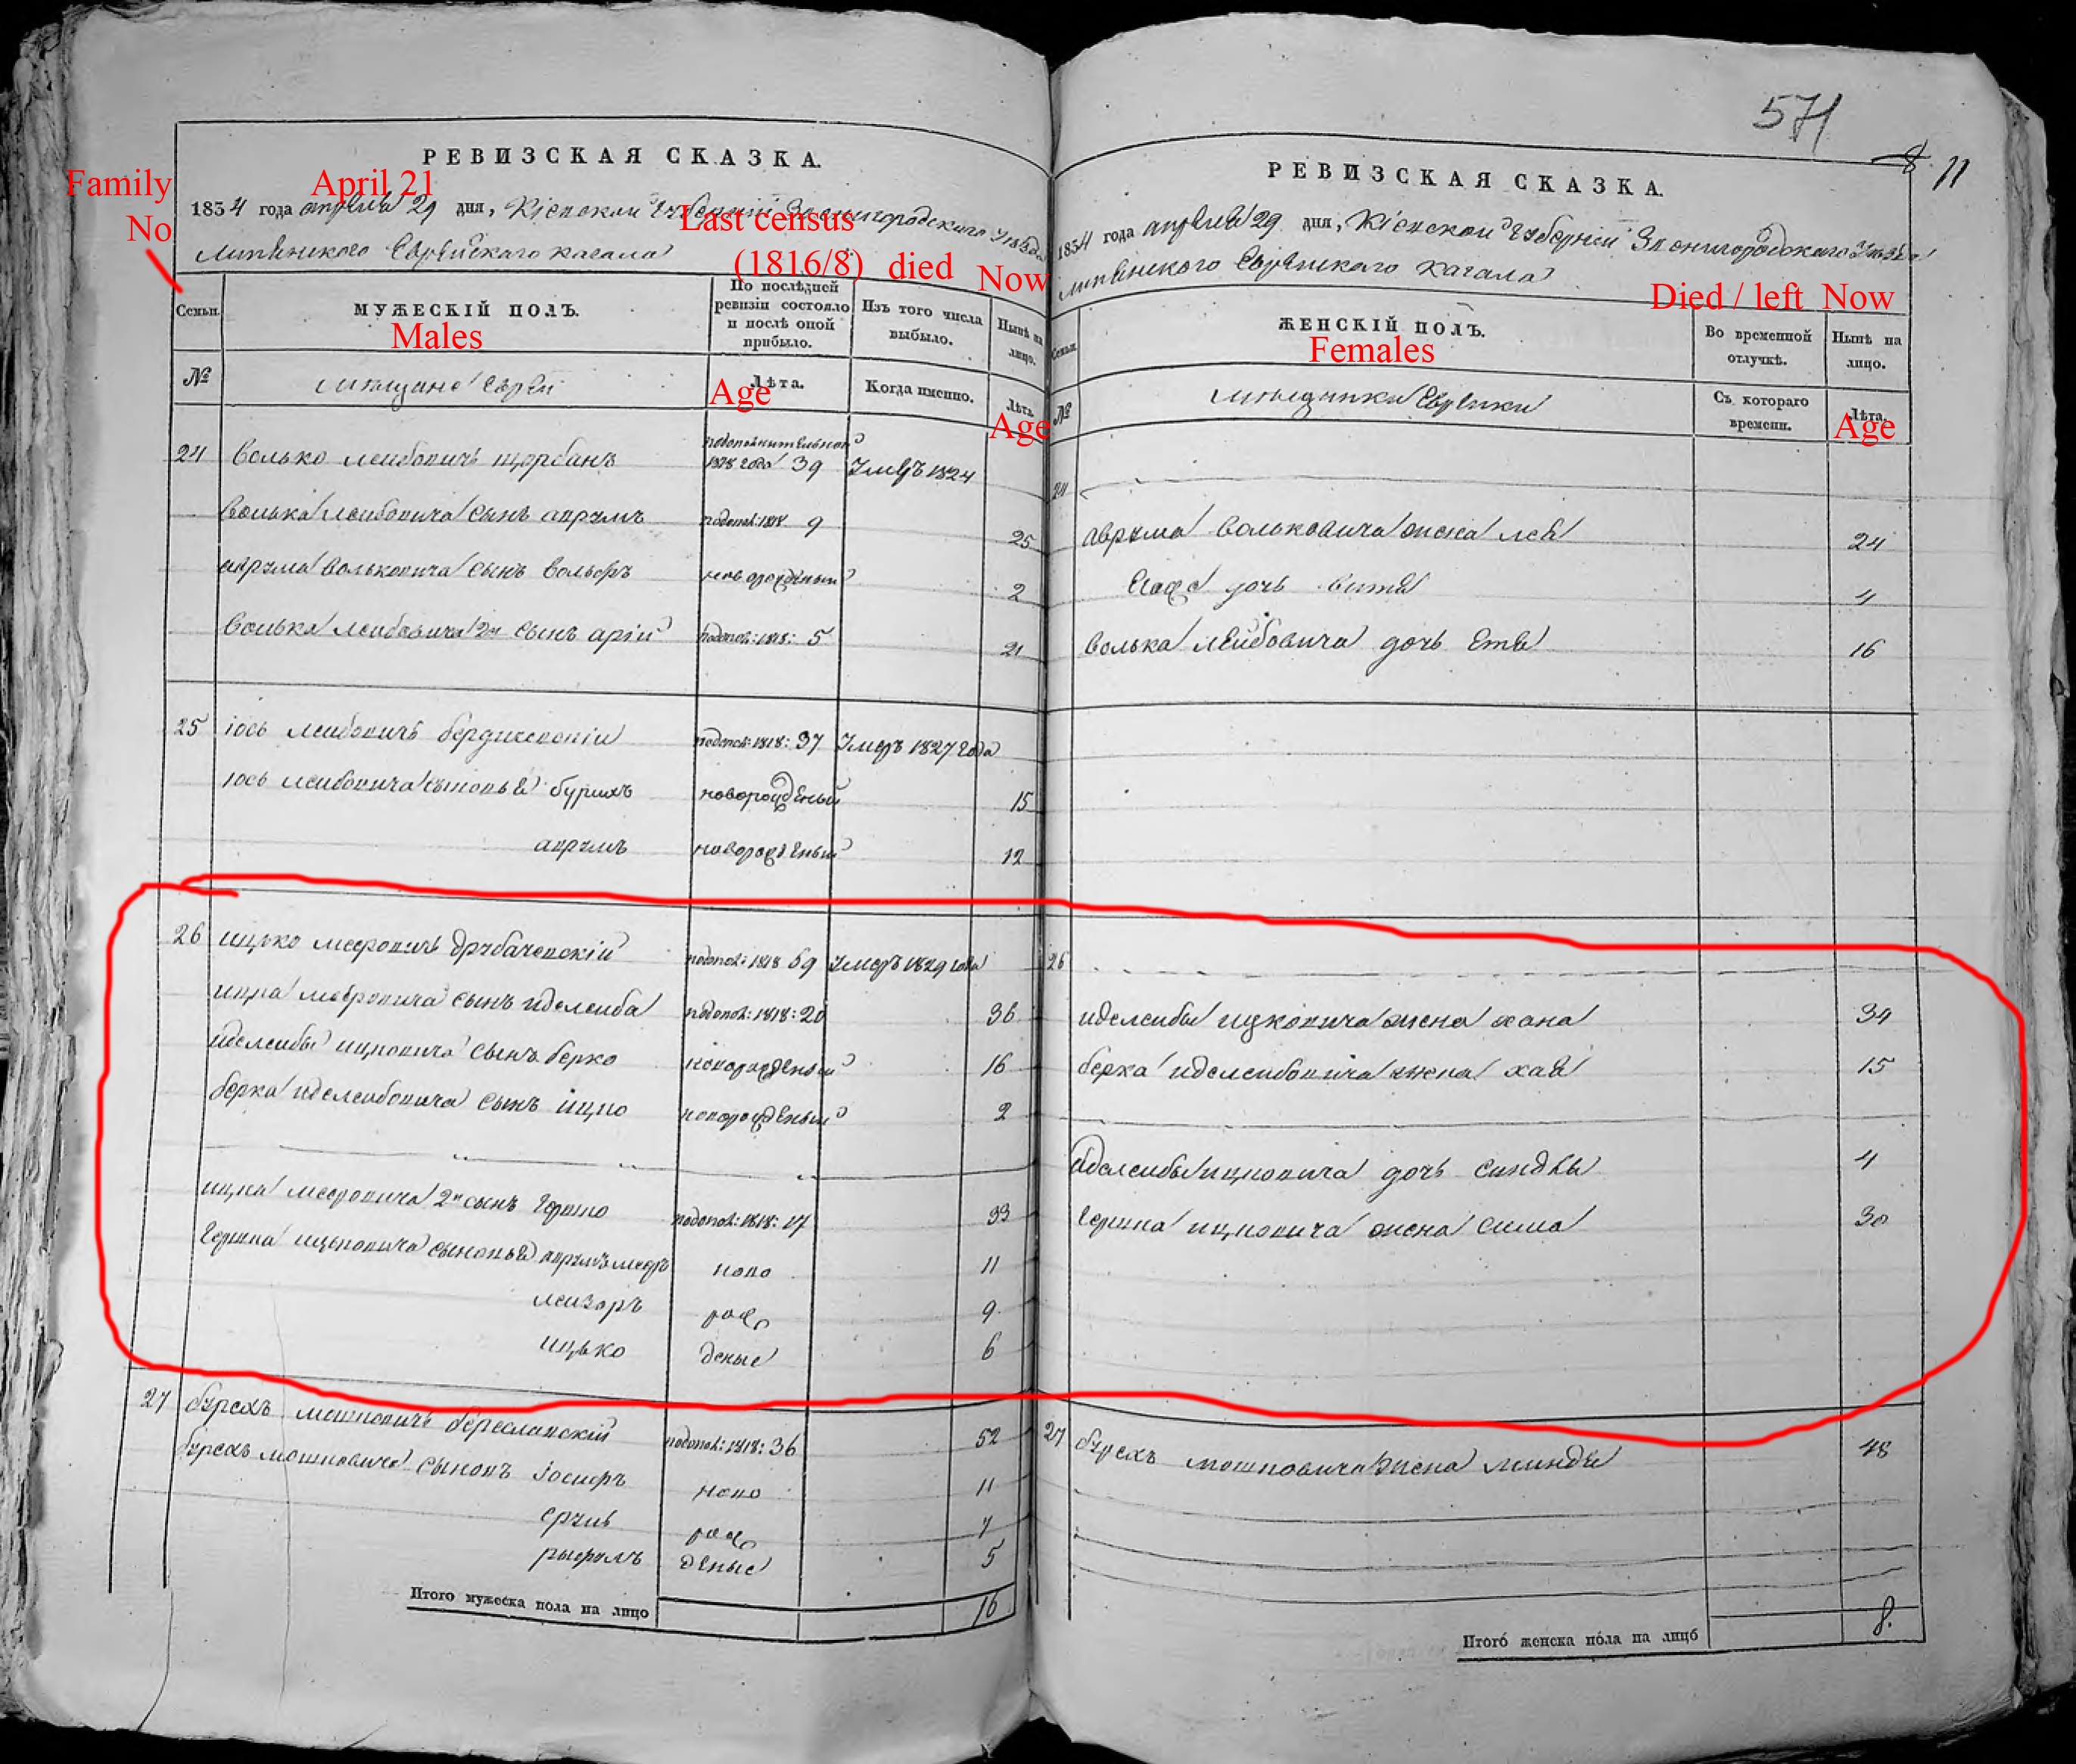 571
8 11
РЕВИЗСКАЯ СКАЗКА.
Family No
April 21
1834 года апреля 29 дня, Кіевской Губерніи Звенигородского Уезда
Last census (1816/8)
died
Now
Еврейскаго кагала
Семьи.
МУЖЕСКІЙ ПОЛЪ.
Males
По послѣдней ревизіи состояло и послѣ оной прибыло.
Изъ того числа выбыло.
Нынѣ на лицо.
№
мещане Евреи
Лѣта.
Age
Когда именно.
Лѣта
Age
24 Волько Леибовичъ щербанъ 1818 года 39 Умеръ 1824
Волька Леибовича сынъ аврумъ 1818 9 25
аврума Вольковича сынъ Вольфъ новорожденный 2
Волька Леибовича 2й сынъ арій 1818: 5 21
25 Іось Леибовичъ бердичевскій 1818: 37 Умеръ 1827 года
Іось Леибовича сыновья бурихъ новорожденый 15
аврумъ новорожденый 12
26 ицко мееровичъ 1818 59 Умеръ 1829 года
ицка мееровича сынъ иделеиба 1818: 20 36
иделеибы ицковича сынъ берко новорожденый 16
берка иделеибовича сынъ ицко новорожденый 2
ицка мееровича 2й сынъ Гершко 1818: 17 33
Гершка ицьковича сыновья аврумъ мееръ ново 11
леизоръ рож 9
ицько деные 6
27 бурехъ мошковичъ береславскій 1818: 36 52
бурехъ мошковича сынов іосифъ ново 11
рож 7
деные 5
Итого мужеска пола на лицо 16
РЕВИЗСКАЯ СКАЗКА.
1834 года апреля 29 дня, Кіевской Губерніи Звенигородского Уезда
Еврейского кагала
Died / left Now
Семьи.
ЖЕНСКІЙ ПОЛЪ.
Females
Во временной отлучкѣ.
Нынѣ на лицо.
№
мещанки Еврейки
Съ котораго времени.
Лѣта.
Age
24
аврума Вольковича жена лея 24
дочь 4
Волька Леибовича дочь Етя 16
26
иделеибы ицковича жена хана 34
берка иделеибовича жена хая 15
иделеибы ицковича дочь 4
Гершка ицковича жена сима 30
27 бурехъ мошковича жена минды 48
Итого женска пола на лицо 8.